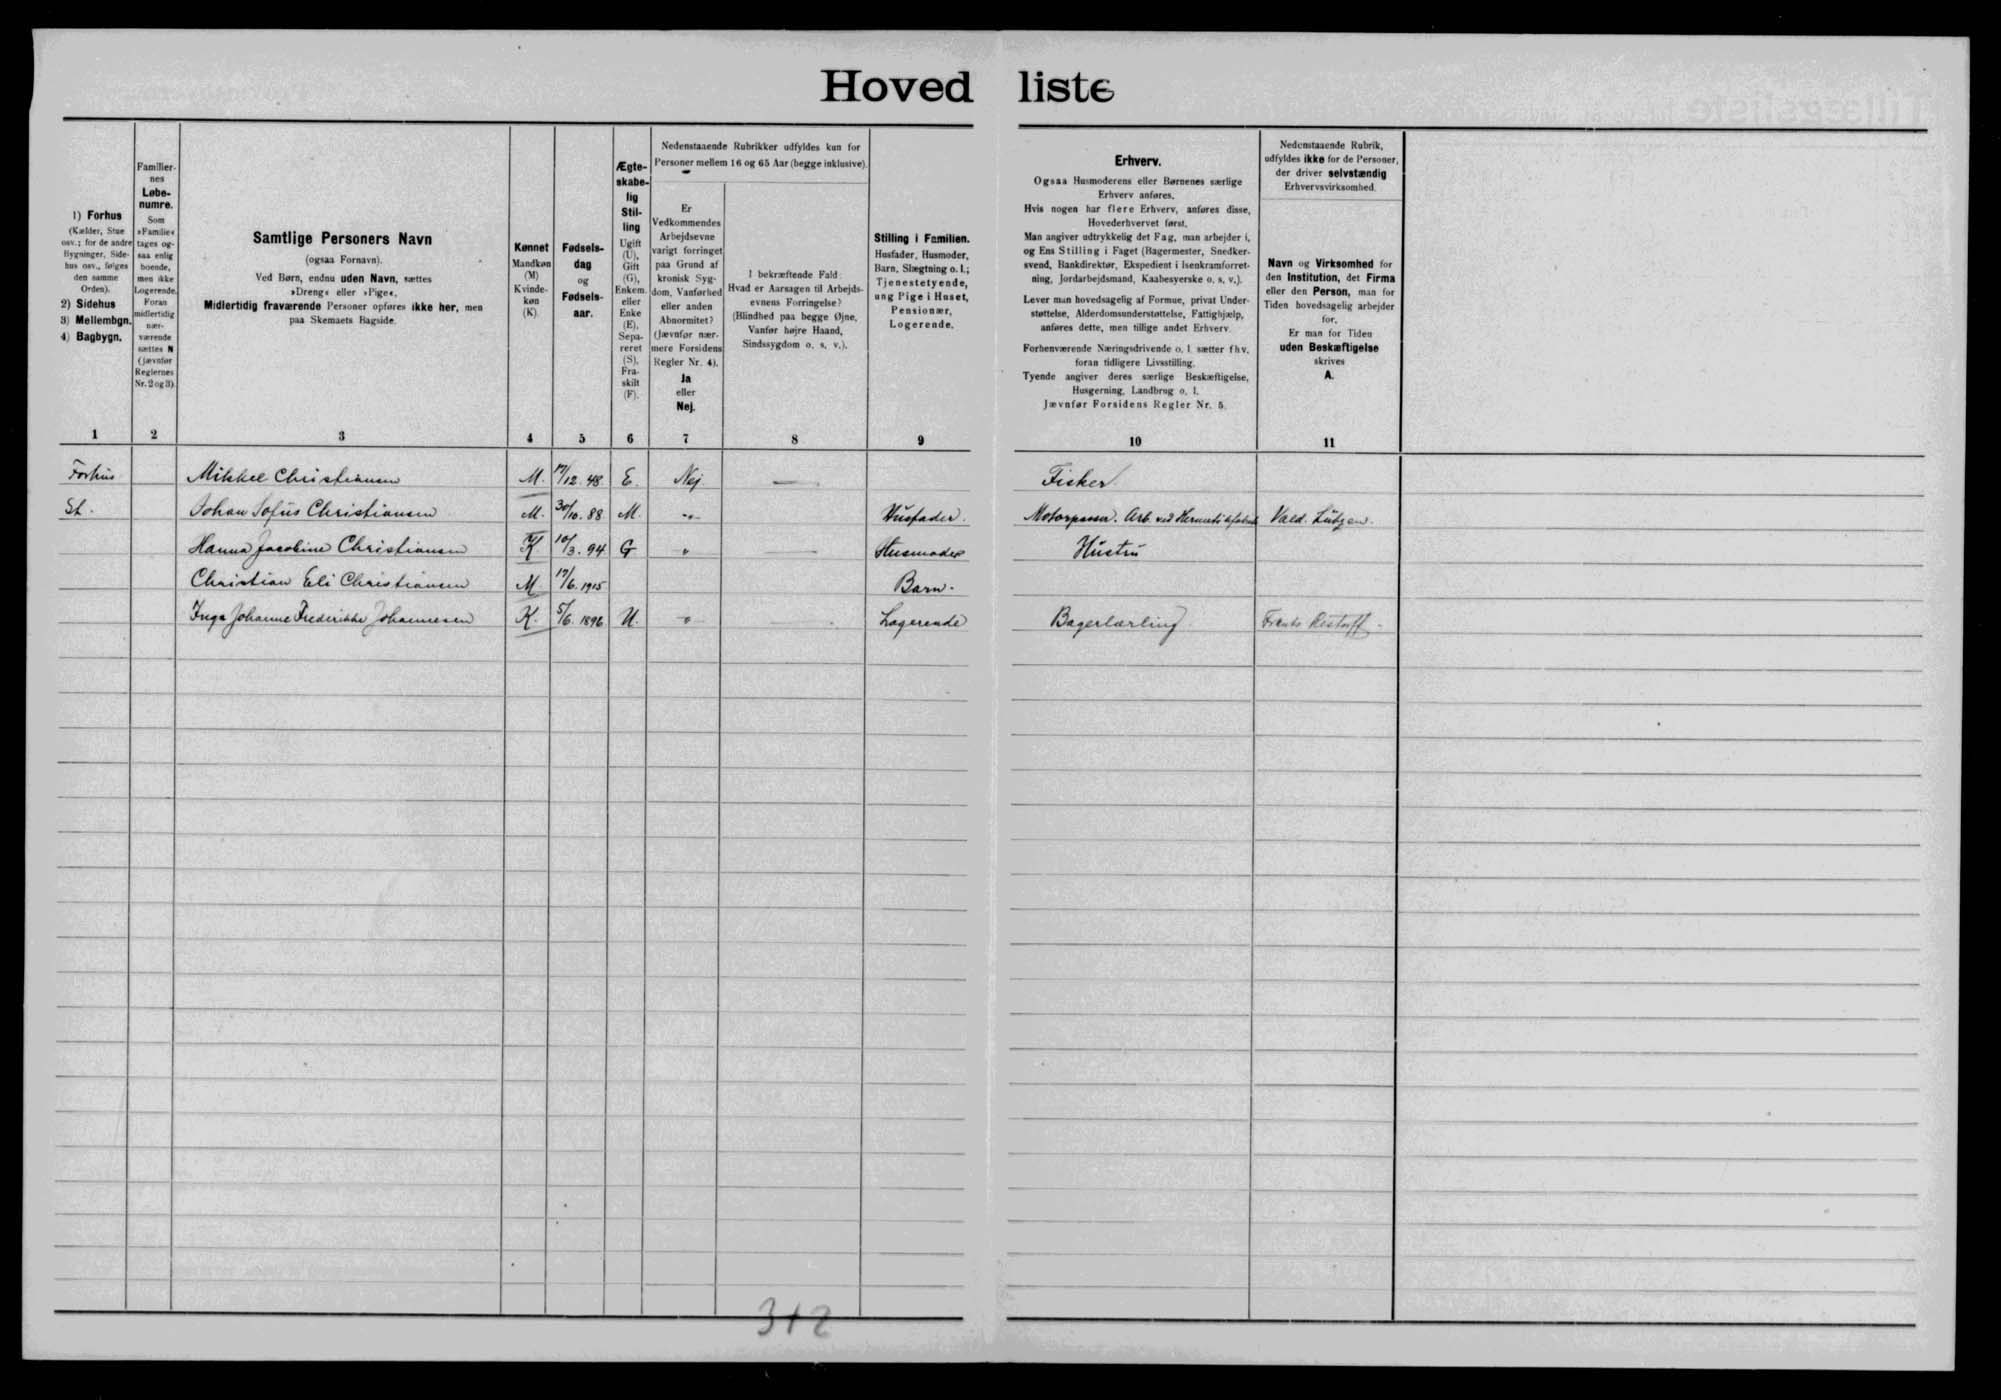 Hoved liste
1) Forhus
(Kælder, Stue
osv.; for de andre
Bygninger, Side-
hus osv., følges
den samme
Orden).
2) Sidehus
3) Mellembgn.
4) Bagbygn.
1
Familier-
nes
Løbe-
numre.
Som
»Familie«
tages og-
saa enlig
boende,
men ikke
Logerende.
Foran
midlertidig
nær-
værende
sættes N
(jævnfør
Reglernes
Nr. 2 og 3).
2
Samtlige Personers Navn
(ogsaa Fornavn).
Ved Børn, endnu uden Navn, sættes
»Dreng« eller »Pige«,
Midlertidig fraværende Personer opføres ikke her, men
paa Skemaets Bagside.
3
Kønnet
Mandkøn
(M)
Kvinde-
køn
(K).
4
Fødsels-
dag
og
Fødsels-
aar.
5
Ægte-
skabe-
lig
Stil-
ling
Ugift
(U),
Gift
(G),
Enkem.
eller
Enke
(E),
Sepa-
reret
(S),
Fra-
skilt
(F).
6
Nedenstaaende Rubrikker udfyldes kun for
Personer mellem 16 og 65 Aar (begge inklusive).
Er
Vedkommendes
Arbejdsevne
varigt forringet
paa Grund af
kronisk Syg-
dom, Vanførhed
eller anden
Abnormitet?
(Jævnfør nær-
mere Forsidens
Regler Nr. 4).
Ja
eller
Nej.
7
I bekræftende Fald:
Hvad er Aarsagen til Arbejds-
evnens Forringelse?
(Blindhed paa begge Øjne,
Vanfør højre Haand,
Sindssygdom o. s. v.).
8
Stilling i Familien.
Husfader, Husmoder,
Barn, Slægtning o. l.;
Tjenestetyende,
ung Pige i Huset,
Pensionær,
Logerende.
9
Erhverv.
Ogsaa Husmoderens eller Børnenes særlige
Erhverv anføres.
Hvis nogen har flere Erhverv, anføres disse,
Hovederhvervet først.
Man angiver udtrykkelig det Fag, man arbejder i,
og Ens Stilling i Faget (Bagermester, Snedker-
svend, Bankdirektør, Ekspedient i Isenkramforret-
ning, Jordarbejdsmand, Kaabesyerske o. s. v.).
Lever man hovedsagelig af Formue, privat Under-
støttelse, Alderdomsunderstøttelse, Fattighjælp,
anføres dette, men tillige andet Erhverv.
Forhenværende Næringsdrivende o. l. sætter fhv.
foran tidligere Livsstilling.
Tyende angiver deres særlige Beskæftigelse,
Husgerning, Landbrug o. l.
Jævnfør Forsidens Regler Nr. 5.
10
Nedenstaaende Rubrik,
udfyldes ikke for de Personer,
der driver selvstændig
Erhvervsvirksomhed.
Navn og Virksomhed for
den Institution, det Firma
eller den Person, man for
Tiden hovedsagelig arbejder
for.
Er man for Tiden
uden Beskæftigelse
skrives
A.
11
Forhus Mikkel Christiansen M. 17/12. 48 E. Nej — Fisker.
St. Johan Sofus Christiansen M. 30/10. 88 M. " Husfader. Motorpasser. Arb. ved Vald. Lützen.
Hanna Jacobine Christiansen K 10/3. 94 G " — Husmoder Hustru
Christian Eli Christiansen M 17/6. 1915 Barn.
Inga Johanne Frederikke Johannesen K. 5/6. 1896 U. " Logerende Bagerlærling
312